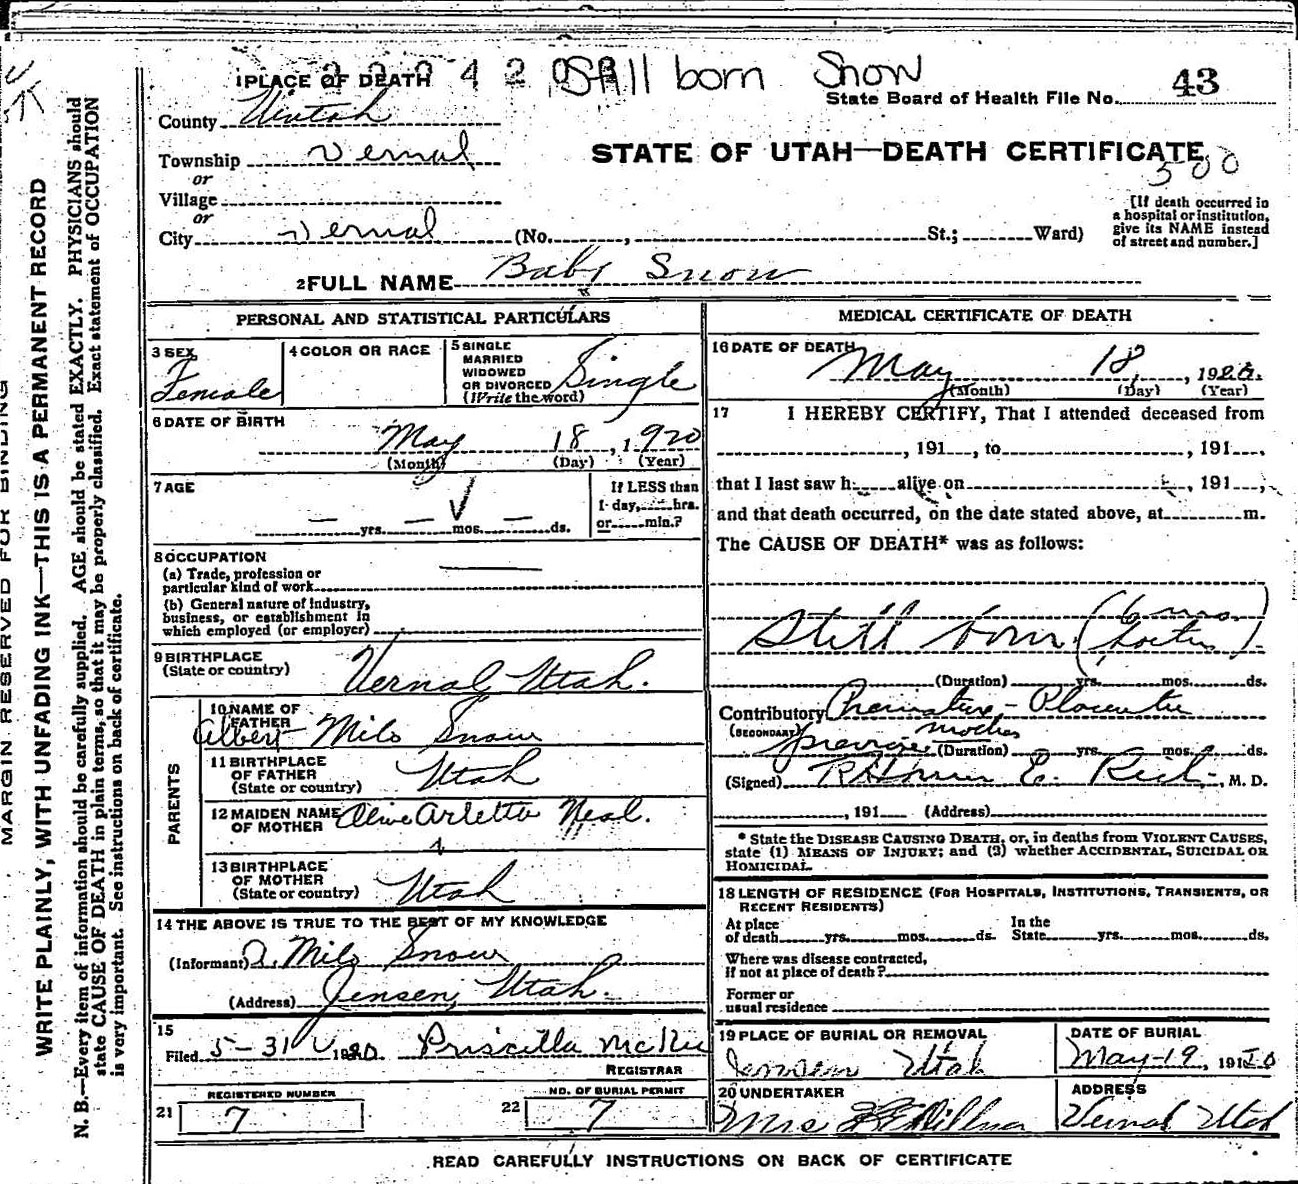 1 PLACE OF DEATH Still born Snow
State Board of Health File No. 43
County Uintah
STATE OF UTAH—DEATH CERTIFICATE
500
Township Vernal
or
Village
or
City Vernal (No. , St.; Ward)
[If death occurred in
a hospital or institution,
give its NAME instead
of street and number.]
2 FULL NAME Baby Snow
PERSONAL AND STATISTICAL PARTICULARS
3 SEX Female
4 COLOR OR RACE
5 SINGLE
MARRIED
WIDOWED
OR DIVORCED
(Write the word) Single
6 DATE OF BIRTH
May 18, 1920
(Month) (Day) (Year)
7 AGE
— yrs. — mos. — ds.
If LESS than
1 day, hrs.
or min.?
8 OCCUPATION
(a) Trade, profession or
particular kind of work
(b) General nature of industry,
business, or establishment in
which employed (or employer)
9 BIRTHPLACE
(State or country) Vernal Utah.
PARENTS
10 NAME OF
FATHER
Albert Milo Snow
11 BIRTHPLACE
OF FATHER
(State or country) Utah
12 MAIDEN NAME
OF MOTHER Olive Arletta Neal.
13 BIRTHPLACE
OF MOTHER
(State or country) Utah
14 THE ABOVE IS TRUE TO THE BEST OF MY KNOWLEDGE
(Informant) A. Milo Snow
(Address) Jensen, Utah.
15
Filed 5-31 1920 Priscilla
REGISTRAR
21 REGISTERED NUMBER
7
22 NO. OF BURIAL PERMIT
7
MEDICAL CERTIFICATE OF DEATH
16 DATE OF DEATH
May 18, 1920.
(Month) (Day) (Year)
17 I HEREBY CERTIFY, That I attended deceased from
, 191 , to , 191 ,
that I last saw h alive on , 191 ,
and that death occurred, on the date stated above, at m.
The CAUSE OF DEATH* was as follows:
Still born (6 mos. foetus).
(Duration) yrs. mos. ds.
Contributory Premature - Placenta
(SECONDARY) praevia mother (Duration) yrs. mos. ds.
(Signed) E. Rich, M. D.
, 191 (Address)
* State the DISEASE CAUSING DEATH, or, in deaths from VIOLENT CAUSES,
state (1) MEANS OF INJURY; and (3) whether ACCIDENTAL, SUICIDAL OR
HOMICIDAL.
18 LENGTH OF RESIDENCE (FOR HOSPITALS, INSTITUTIONS, TRANSIENTS, OR
RECENT RESIDENTS)
At place
of death yrs. mos. ds. In the
State yrs. mos. ds.
Where was disease contracted,
if not at place of death?
Former or
usual residence
19 PLACE OF BURIAL OR REMOVAL
Jensen Utah
DATE OF BURIAL
May-19, 1920
20 UNDERTAKER
Mrs
ADDRESS
Vernal Utah
READ CAREFULLY INSTRUCTIONS ON BACK OF CERTIFICATE
MARGIN RESERVED FOR BINDING
WRITE PLAINLY, WITH UNFADING INK—THIS IS A PERMANENT RECORD
N. B.—Every item of information should be carefully supplied. AGE should be stated EXACTLY. PHYSICIANS should
state CAUSE OF DEATH in plain terms, so that it may be properly classified. Exact statement of OCCUPATION
is very important. See instructions on back of certificate.